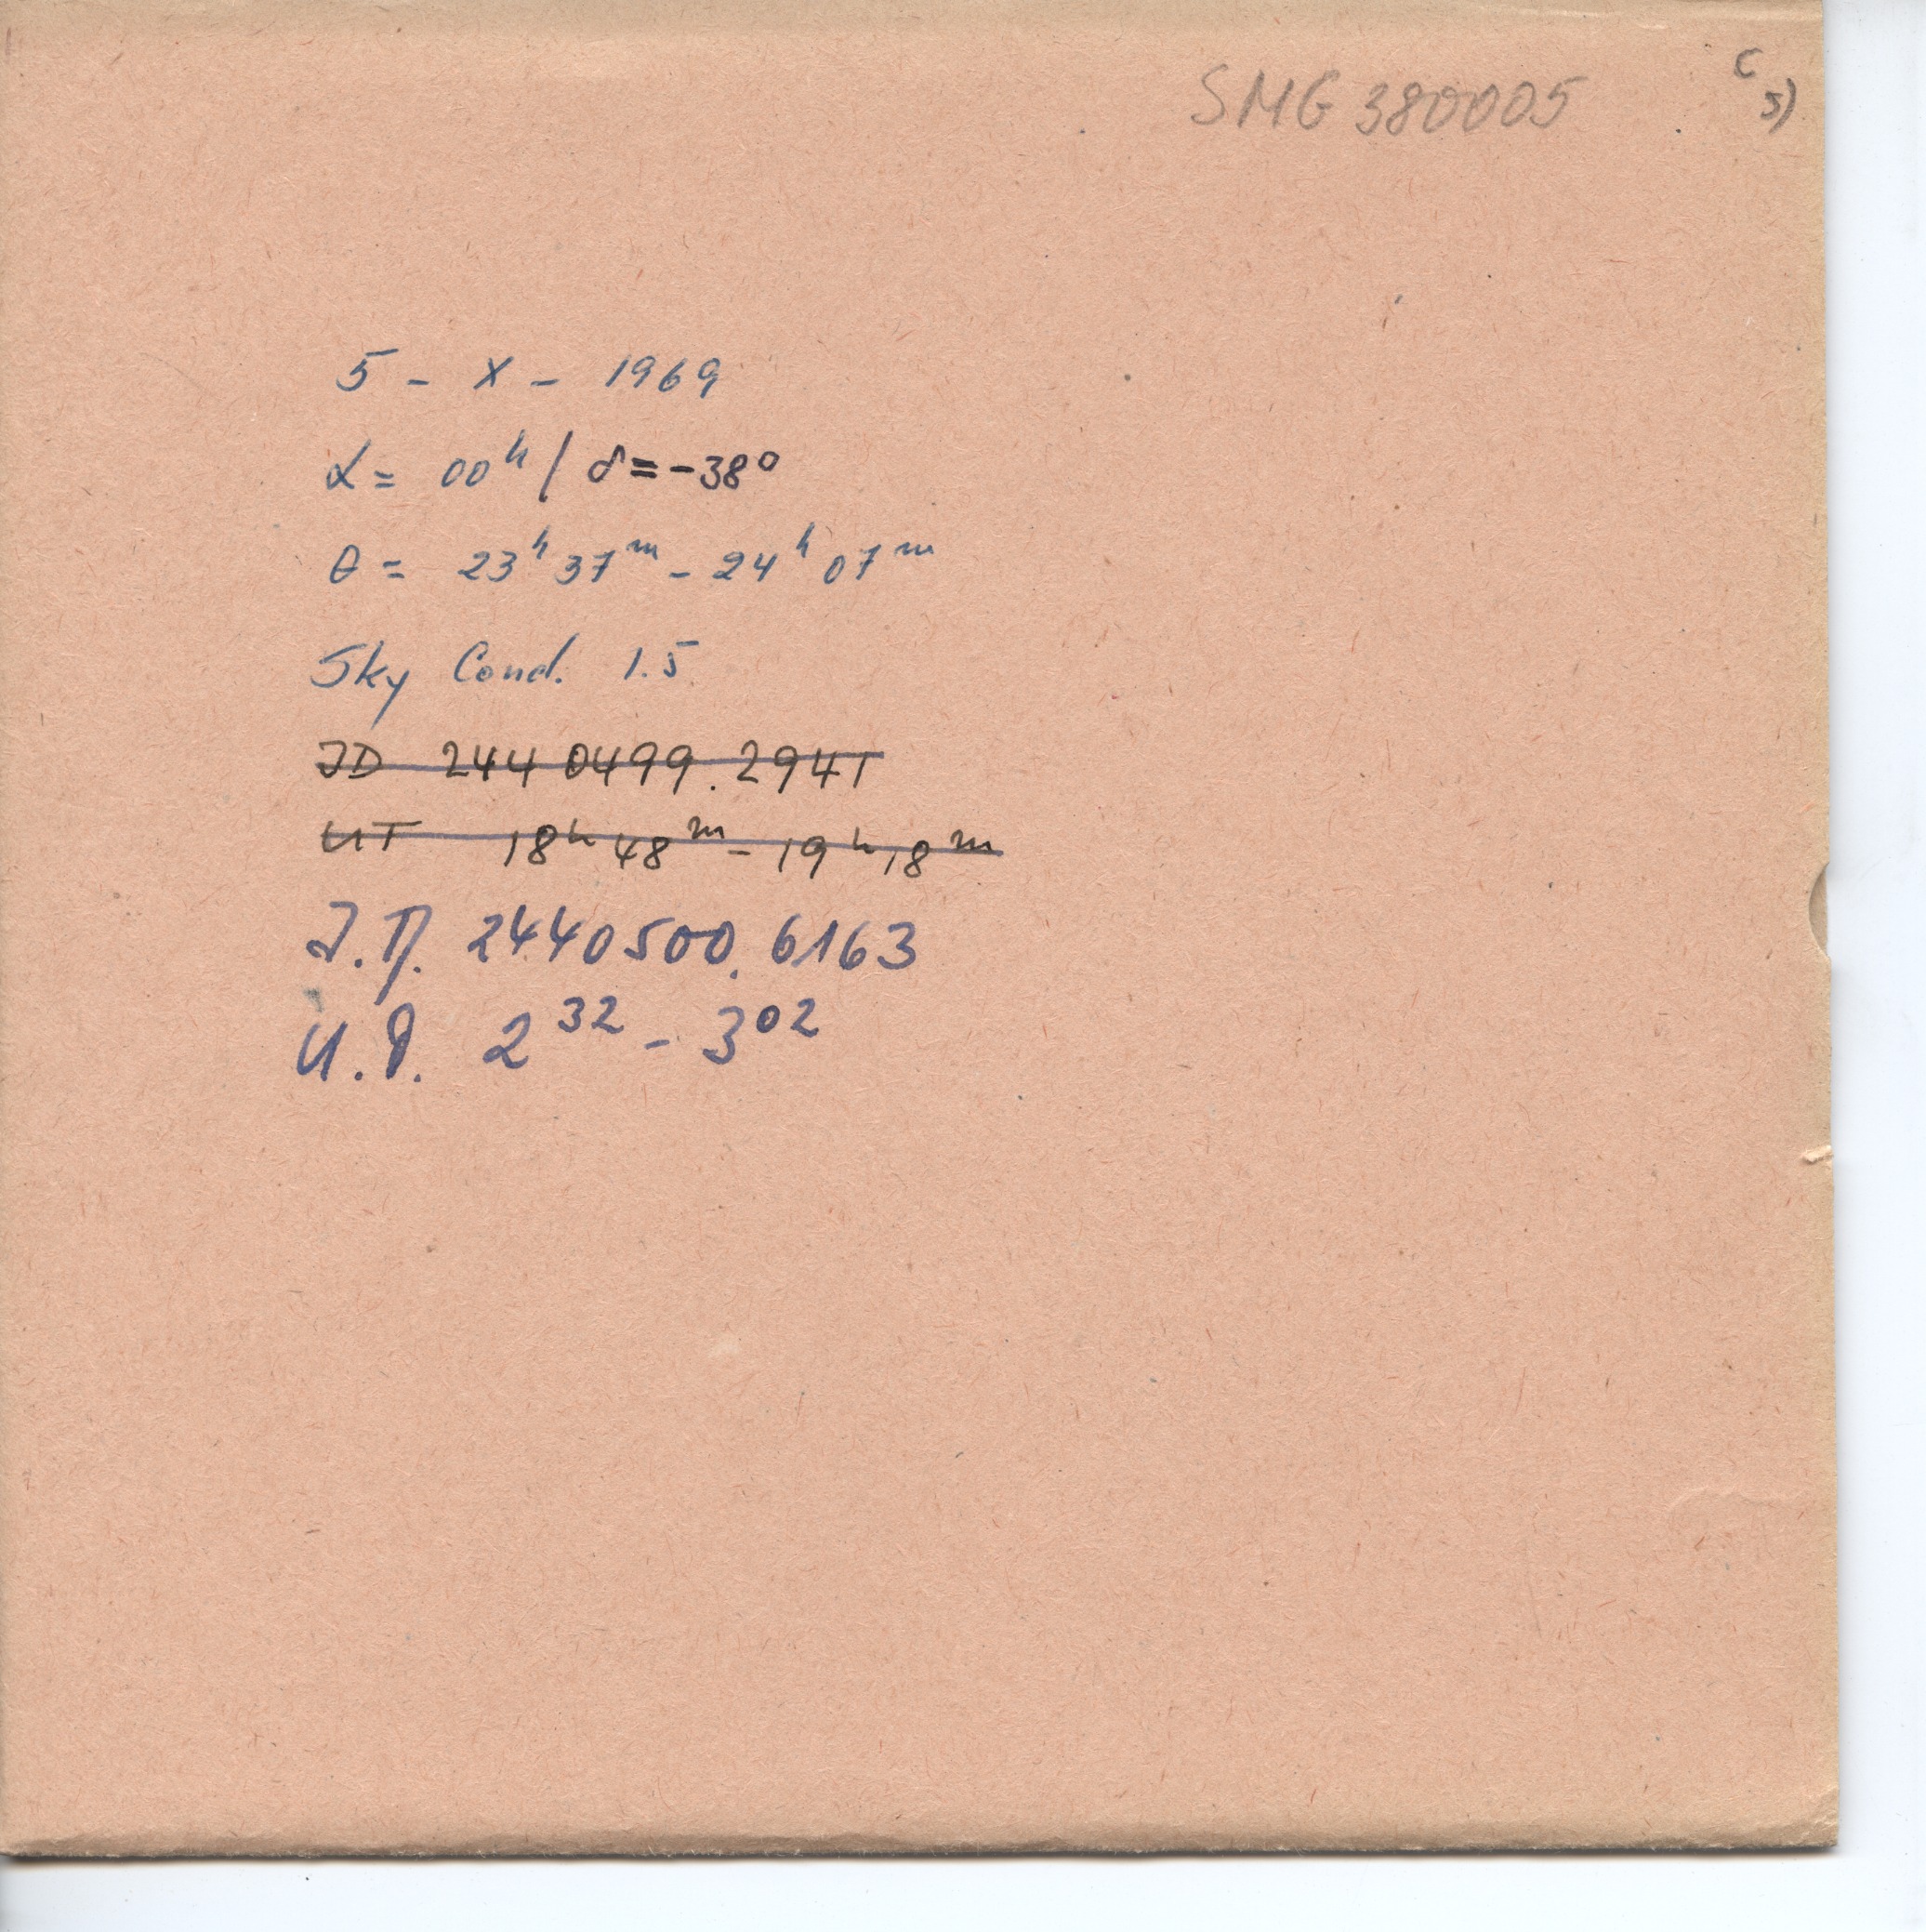 SMG 380005
C
5)
5 - X - 1969
α = 00ʰ / δ = -38°
θ = 23ʰ 37ᵐ - 24ʰ 07ᵐ
Sky Cond. 1.5
JD 244 0499.2941
UT 18ʰ 48ᵐ - 19ʰ 18ᵐ
J.D. 2440500.6163
U.T. 2³² - 3⁰²